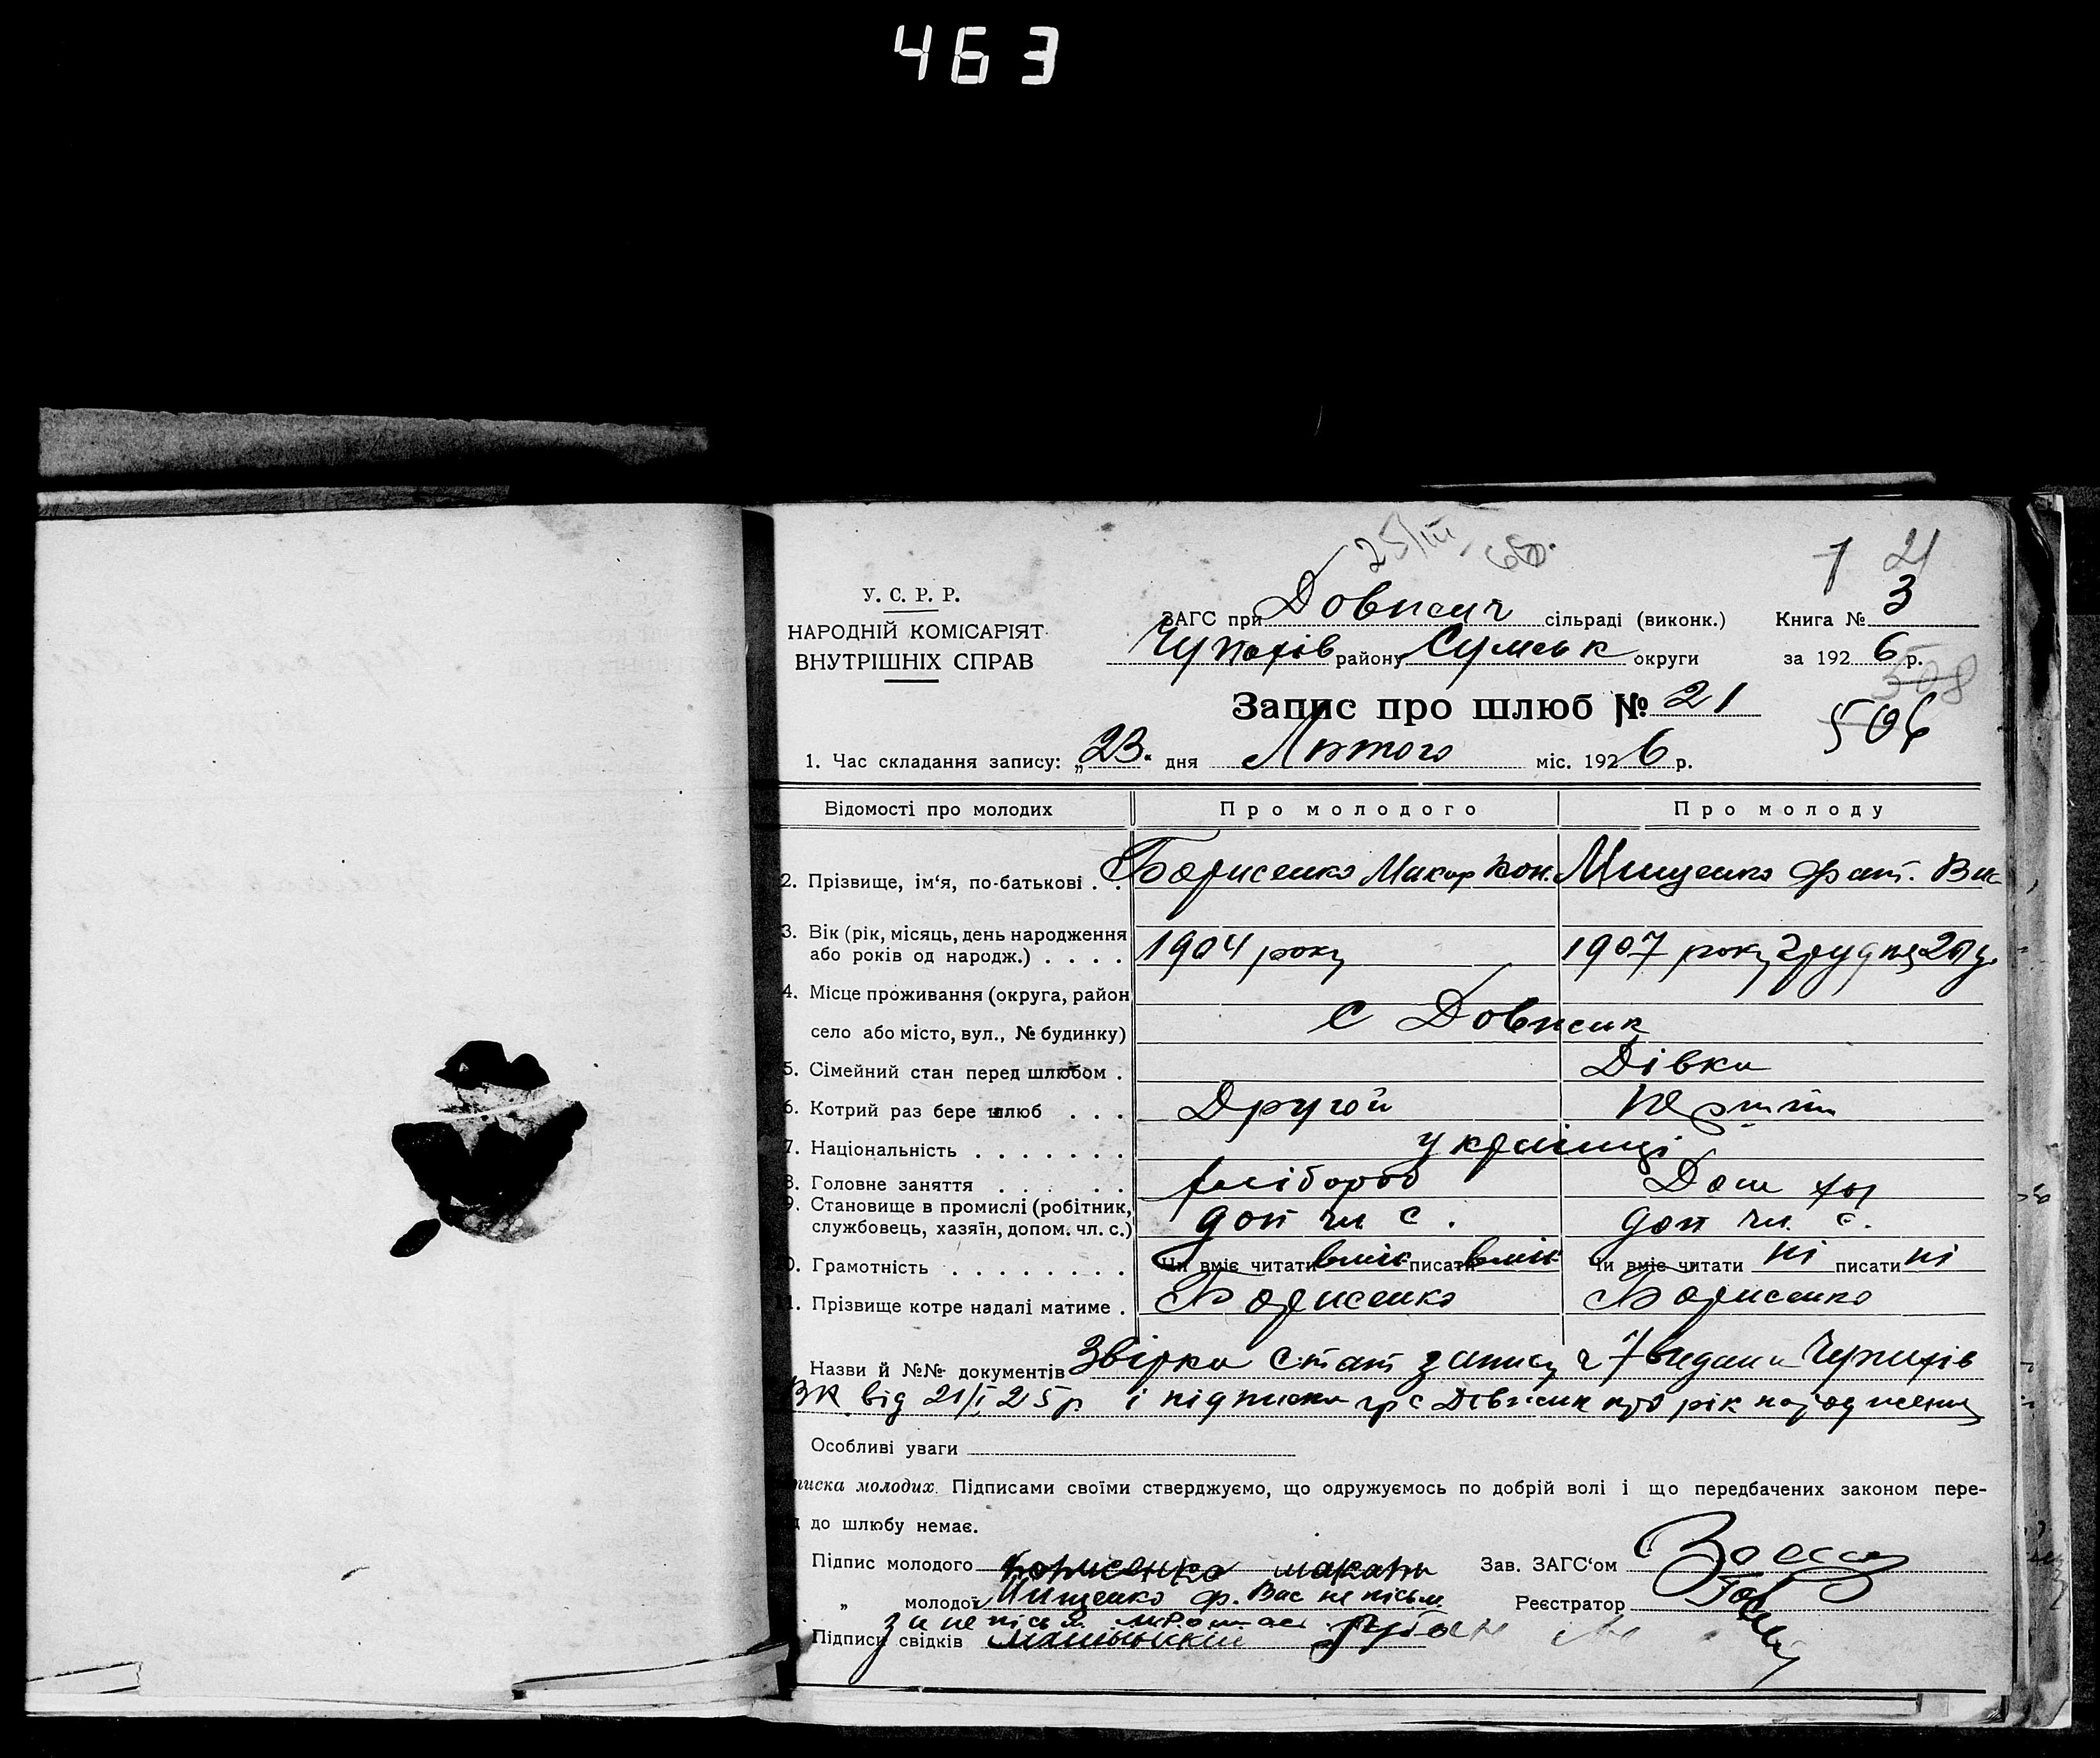 463
25/III
1 21
У. С. Р. Р.
НАРОДНІЙ КОМІСАРІЯТ
ВНУТРІШНІХ СПРАВ
ЗАГС при Довжич сільраді (виконк.) Книга № 3
Чупахів району Сумськ округи за 1926 р.
508
Запис про шлюб № 21
506
1. Час складання запису: „23. дня Лютого міс. 1926 р.
Відомості про молодих Про молодого Про молоду
2. Прізвище, ім‘я, по-батькові . . Борисенко Макар Кон. Мищенко Фат. Вас
3. Вік (рік, місяць, день народження
або років од народж.) . . . . 1904 року 1907 року Грудня 20 д.
4. Місце проживання (округа, район
село або місто, вул., № будинку) С Довжик
5. Сімейний стан перед шлюбом . Дівка
6. Котрий раз бере шлюб . . . Другой Перший
7. Національність . . . . . . . українці
8. Головне заняття . . . . . . хлібороб Дом
9. Становище в промислі (робітник,
службовець, хазяїн, допом. чл. с.) доп чл с. доп чл. с.
0. Грамотність . . . . . . . . Чи вміє читати вміє писати вміє Чи вміє читати ні писати ні
1. Прізвище котре надалі матиме . Борисенко Борисенко
Назви й №№ документів Звірка стат запису ч 7 видана Чупахів
ВК від 21/I 25 р і підписка гр с Довжик про рік народження
Особливі уваги
писка молодих. Підписами своїми стверджуємо, що одружуємось по добрій волі і що передбачених законом пере-
д до шлюбу немає.
Підпис молодого Борисенко макари Зав. ЗАГС‘ом
„ молодої Мищенко ф. Вас не пісьм Реєстратор
за не пісьм
Підписи свідків